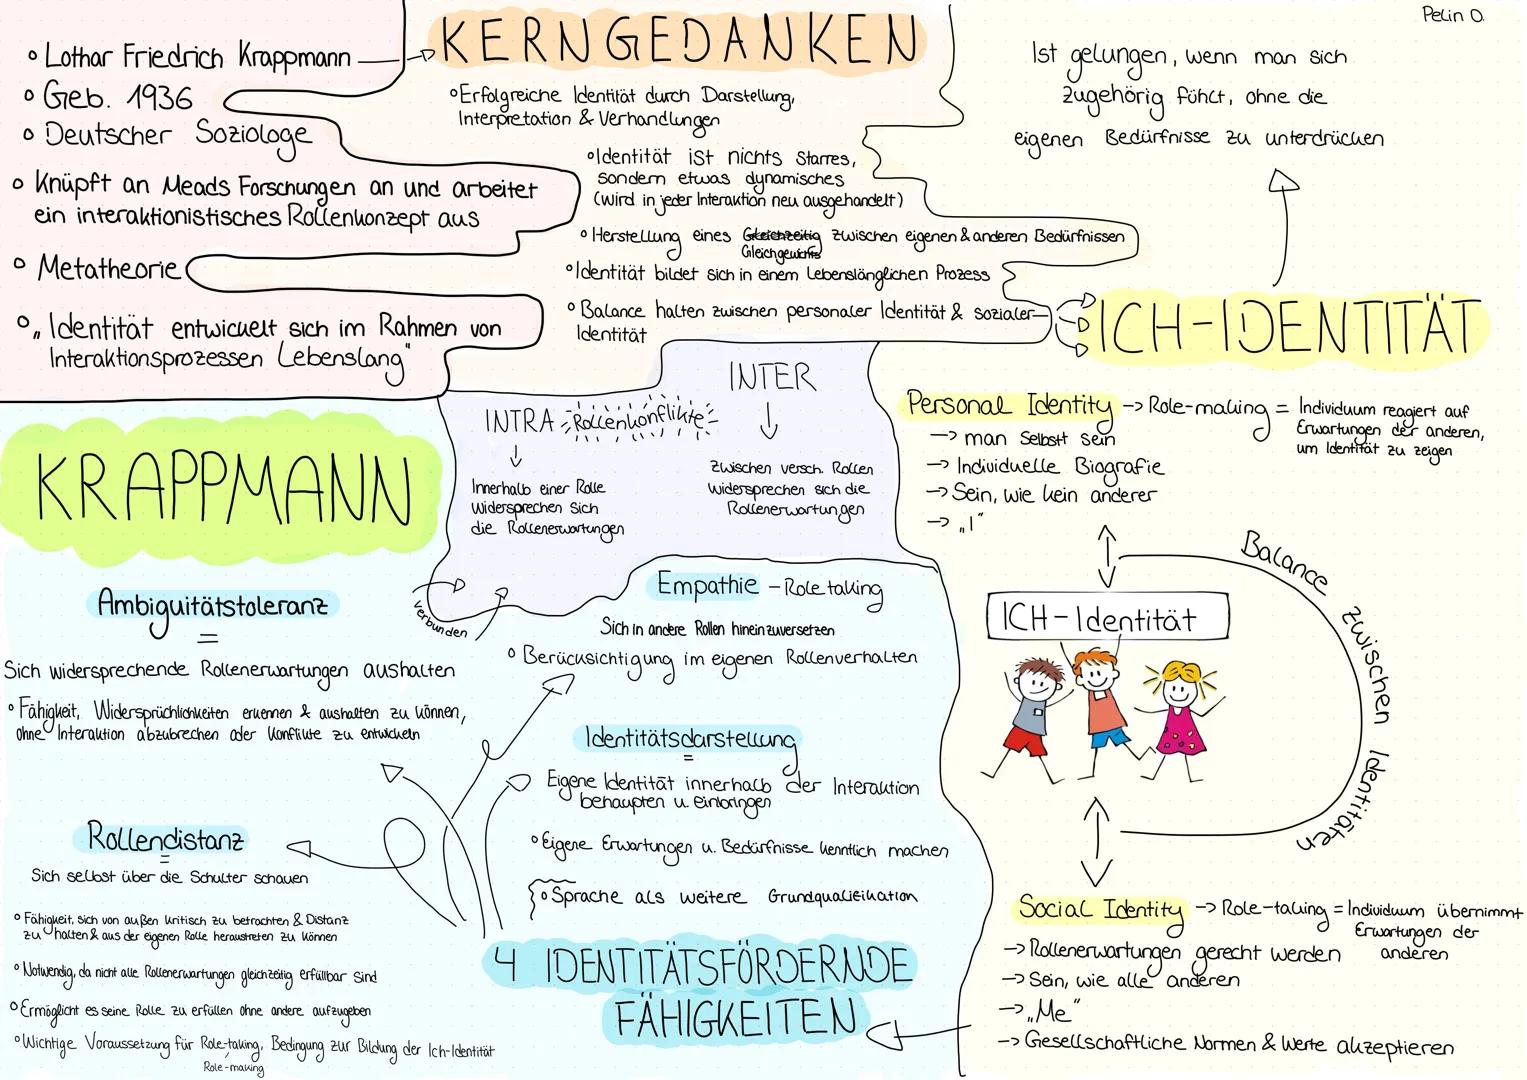 Pelin O.
◦ Lothar Friedrich Krappmann
◦ Geb. 1936
◦ Deutscher Soziologe
◦ Knüpft an Meads Forschungen an und arbeitet
ein interaktionistisches Rollenkonzept aus
◦ Metatheorie
◦ „Identität entwickelt sich im Rahmen von
Interaktionsprozessen Lebenslang"
KERNGEDANKEN
◦ Erfolgreiche Identität durch Darstellung,
Interpretation & Verhandlungen
◦ Identität ist nichts starres,
sondern etwas dynamisches
(wird in jeder Interaktion neu ausgehandelt)
◦ Herstellung eines Gleichzeitig zwischen eigenen & anderen Bedürfnissen
Gleichgewichts
◦ Identität bildet sich in einem Lebenslänglichen Prozess
◦ Balance halten zwischen personaler Identität & sozialer
Identität
Ist gelungen, wenn man sich
zugehörig fühlt, ohne die
eigenen Bedürfnisse zu unterdrücken
ICH-IDENTITÄT
Personal Identity → Role-making = Individuum reagiert auf
Erwartungen der anderen,
um Identität zu zeigen
→ man selbst sein
→ Individuelle Biografie
→ Sein, wie kein anderer
→ „I"
ICH-Identität
Balance zwischen Identitäten
Social Identity → Role-taking = Individuum übernimmt
Erwartungen der
anderen
→ Rollenerwartungen gerecht werden
→ Sein, wie alle anderen
→ „Me"
→ Gesellschaftliche Normen & Werte akzeptieren
KRAPPMANN
INTRA Rollenkonflikte
INTER
Innerhalb einer Rolle
widersprechen sich
die Rollenerwartungen
zwischen versch. Rollen
widersprechen sich die
Rollenerwartungen
verbunden
Ambiguitätstoleranz
=
Sich widersprechende Rollenerwartungen aushalten
◦ Fähigkeit, Widersprüchlichkeiten erkennen & aushalten zu können,
ohne Interaktion abzubrechen oder Konflikte zu entwickeln
Empathie - Role taking
Sich in andere Rollen hineinzuversetzen
◦ Berücksichtigung im eigenen Rollenverhalten
Identitätsdarstellung
=
Eigene Identität innerhalb der Interaktion
behaupten u. einbringen
◦ Eigene Erwartungen u. Bedürfnisse kenntlich machen
◦ Sprache als weitere Grundqualifikation
Rollendistanz
=
Sich selbst über die Schulter schauen
◦ Fähigkeit, sich von außen kritisch zu betrachten & Distanz
zu halten & aus der eigenen Rolle heraustreten zu können
◦ Notwendig, da nicht alle Rollenerwartungen gleichzeitig erfüllbar sind
◦ Ermöglicht es seine Rolle zu erfüllen ohne andere aufzugeben
◦ Wichtige Voraussetzung für Role-taking, Bedingung zur Bildung der Ich-Identität
Role-making
4 IDENTITÄTSFÖRDERNDE
FÄHIGKEITEN